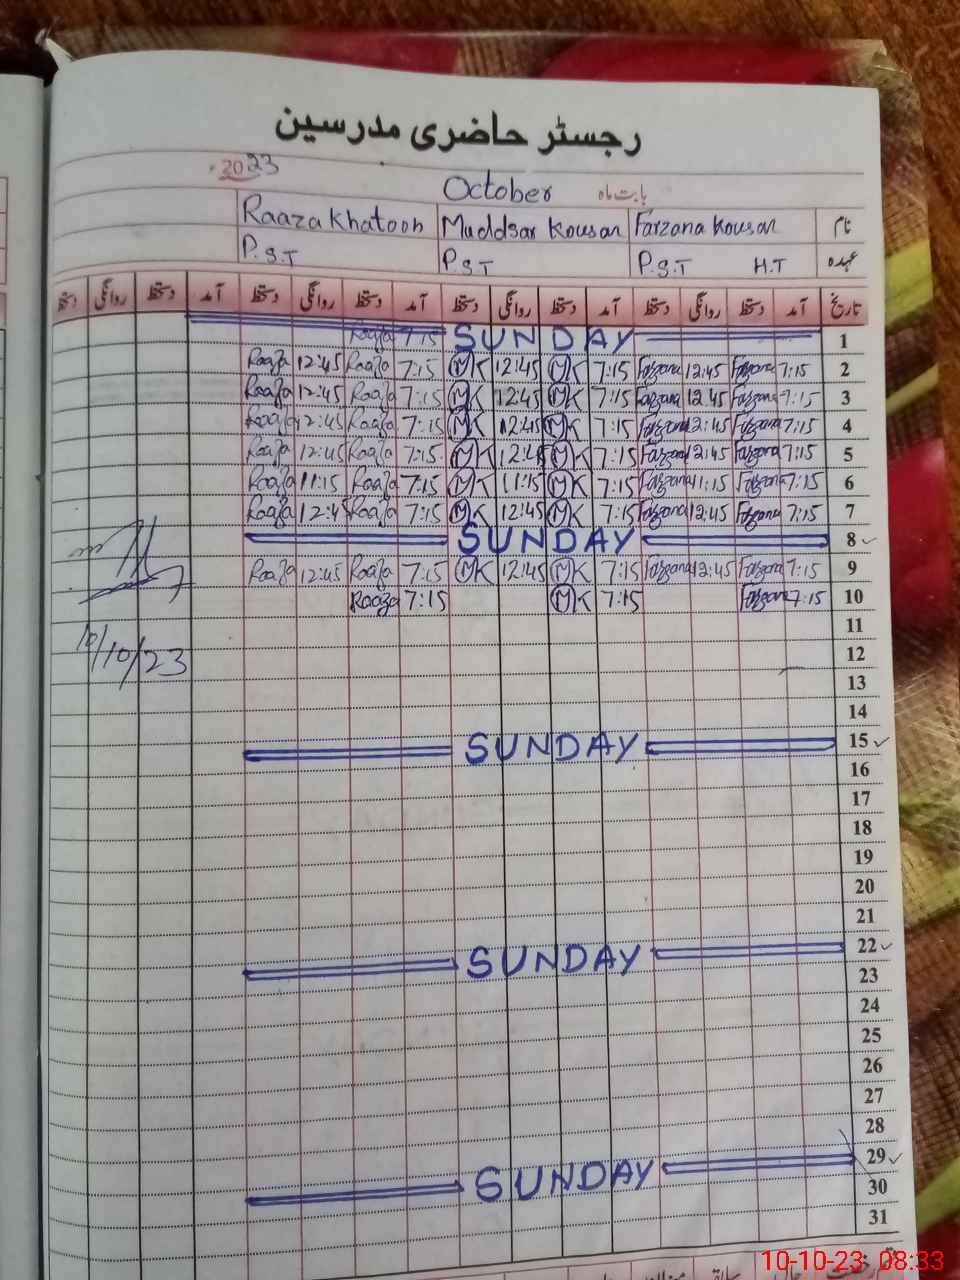 رجسٹر حاضری مدرسین
2023
October بابت ماہ
نام Farzana Kousar Muddsar Kousar Raaza Khatoon
عہدہ H.T P.S.T P.S.T P.S.T
تاریخ آمد دستخط روانگی دستخط آمد دستخط روانگی دستخط آمد دستخط روانگی دستخط آمد دستخط روانگی دستخط
1 SUNDAY 7:15 Raaza
2 7:15 Farzana 12:45 Farzana 7:15 MK 12:45 MK 7:15 Raaza 12:45 Raaza
3 7:15 Farzana 12:45 Farzana 7:15 MK 12:45 MK 7:15 Raaza 12:45 Raaza
4 7:15 Farzana 12:45 Farzana 7:15 MK 12:45 MK 7:15 Raaza 12:45 Raaza
5 7:15 Farzana 12:45 Farzana 7:15 MK 12:45 MK 7:15 Raaza 12:45 Raaza
6 7:15 Farzana 11:15 Farzana 7:15 MK 11:15 MK 7:15 Raaza 11:15 Raaza
7 7:15 Farzana 12:45 Farzana 7:15 MK 12:45 MK 7:15 Raaza 12:45 Raaza
8 SUNDAY
9 7:15 Farzana 12:45 Farzana 7:15 MK 12:45 MK 7:15 Raaza 12:45 Raaza
10 7:15 Farzana 7:15 MK 7:15 Raaza
11
10/10/23
12
13
14
15 SUNDAY
16
17
18
19
20
21
22 SUNDAY
23
24
25
26
27
28
29 SUNDAY
30
31
10-10-23 08:33